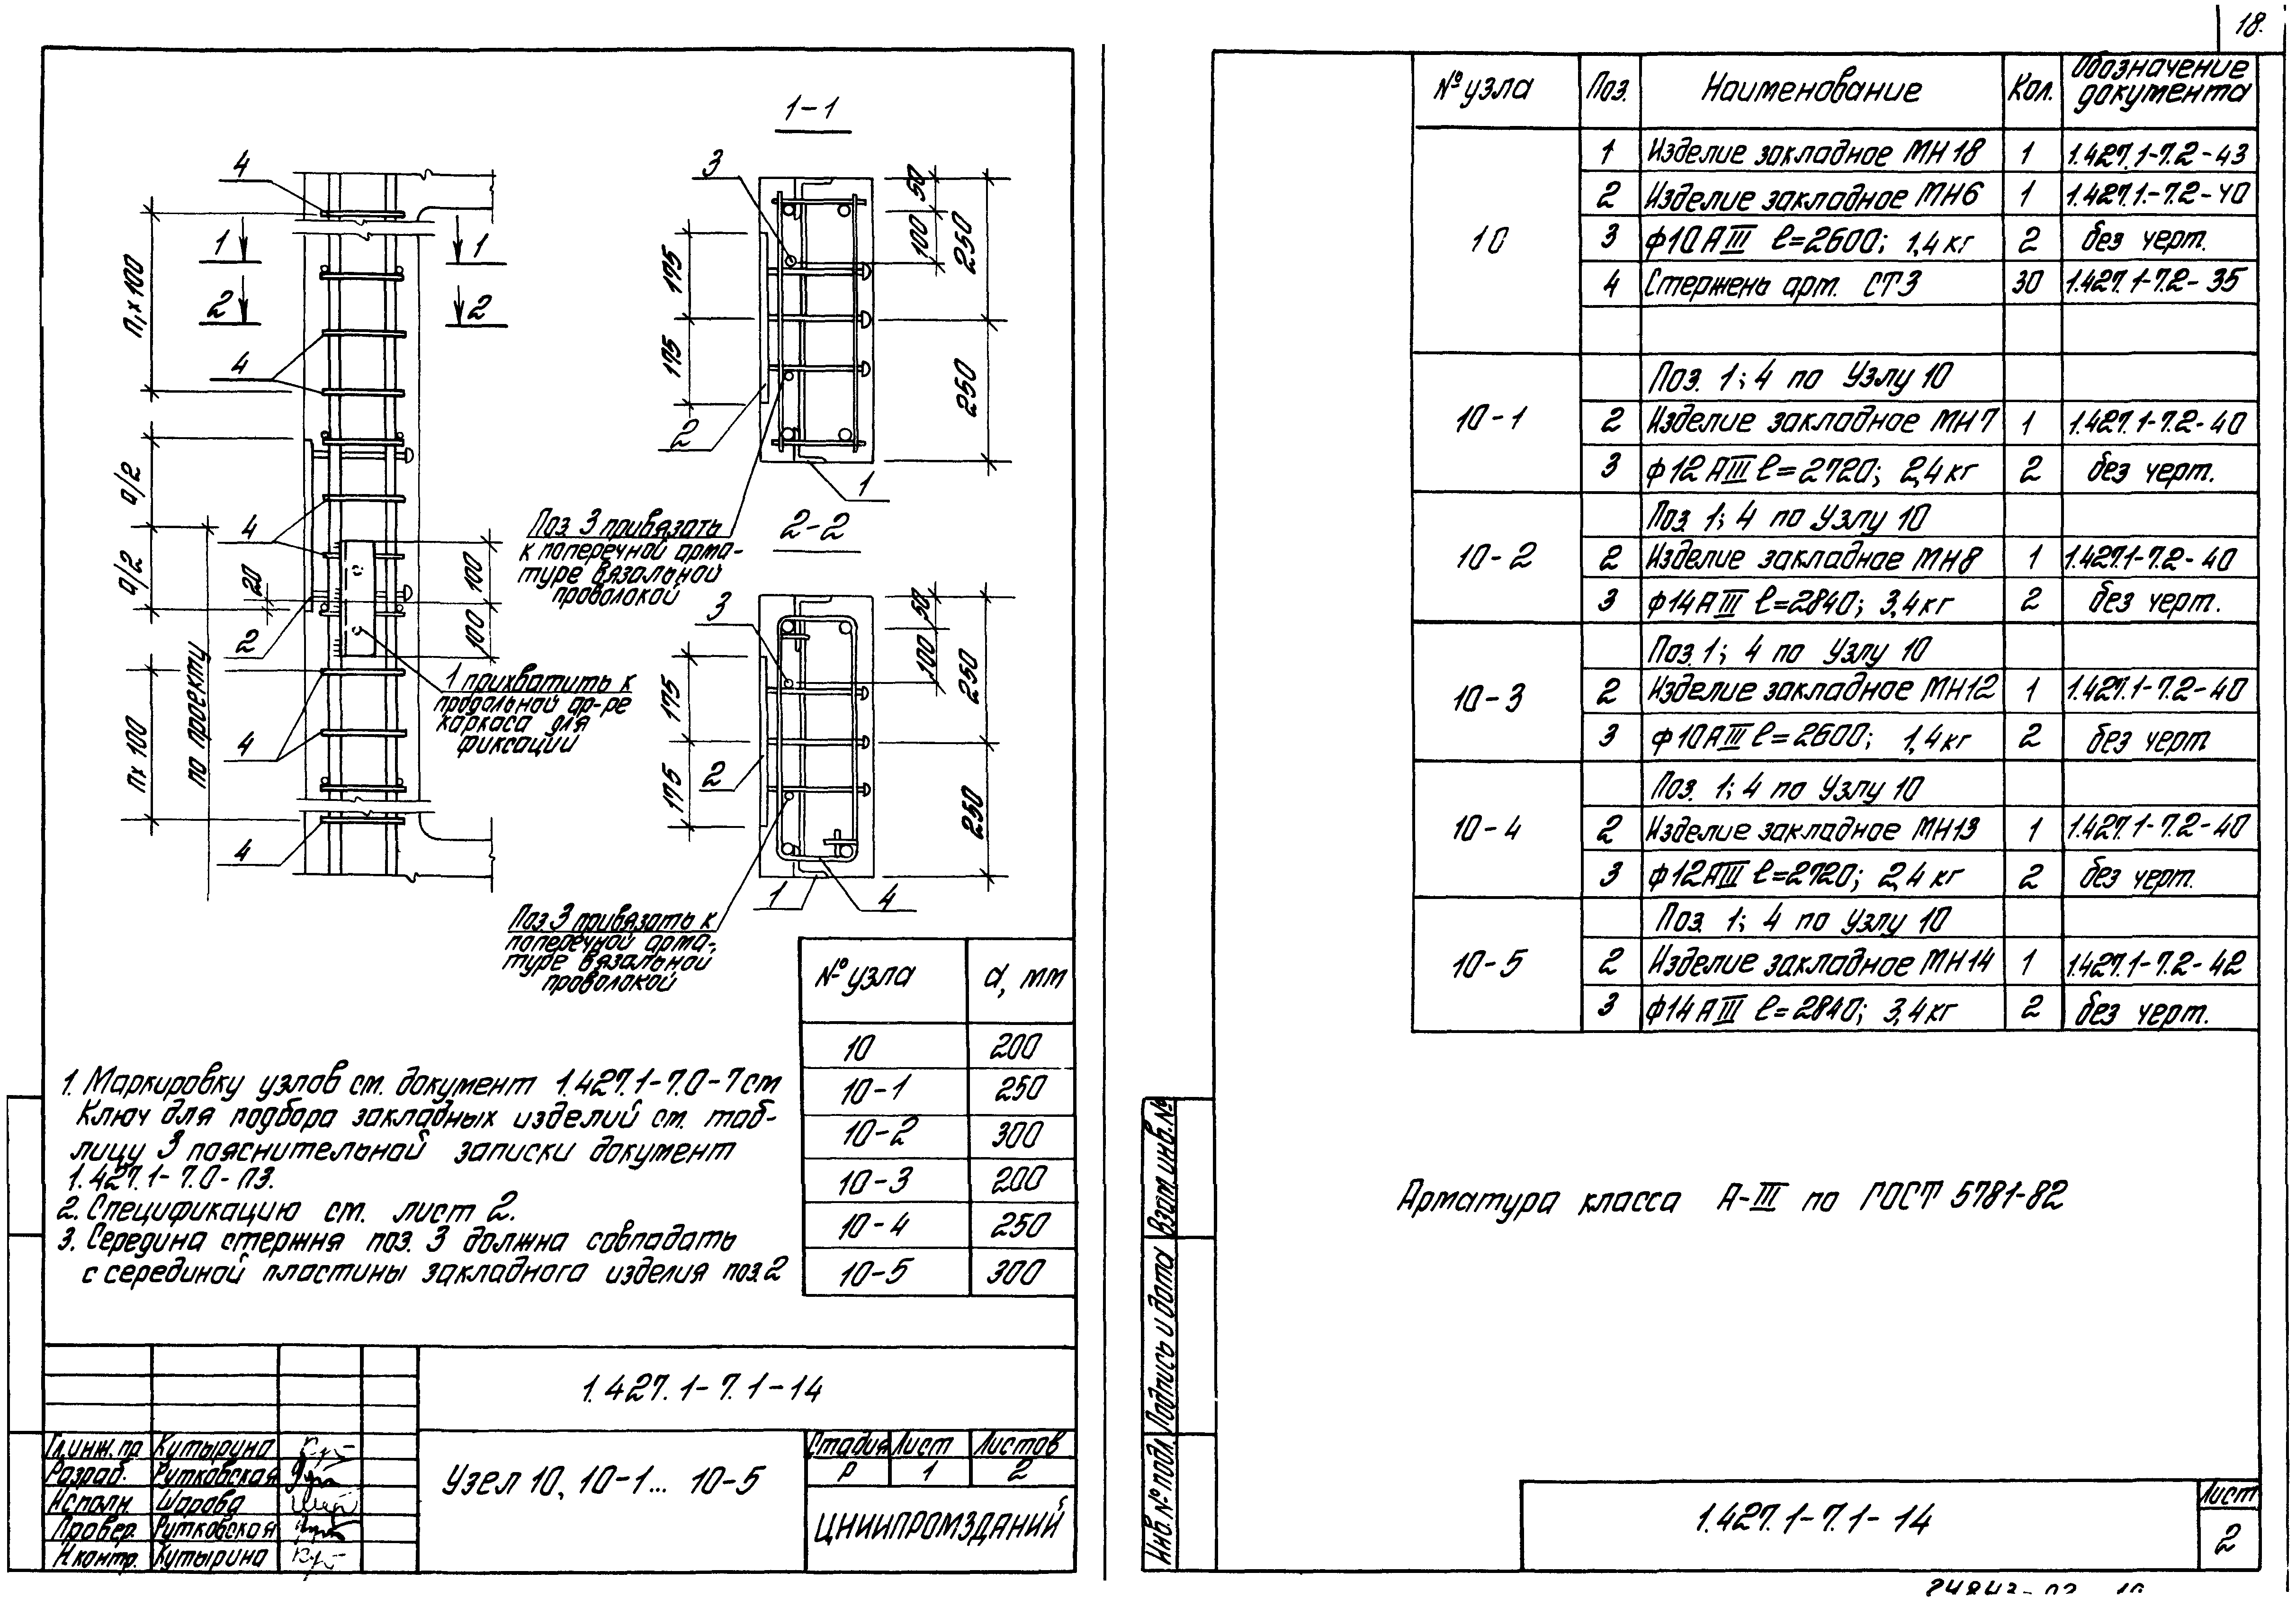 18.
1-1
4
3
50
100
250
1
1
2
2
п₁х100
175
175
250
4
2
1
а/2
а/2
4
20
100
100
2
по проекту
пх100
4
4
Поз. 3 привязать
к поперечной арма-
туре вязальной
проволокой
2-2
1 прихватить к
продольной ар-ре
каркаса для
фиксации
3
50
100
250
175
175
250
2
1
4
Поз. 3 привязать к
поперечной арма-
туре вязальной
проволокой
№ узла а, мм
10 200
10-1 250
10-2 300
10-3 200
10-4 250
10-5 300
1. Маркировку узлов см. документ 1.427.1-7.0-7см
Ключ для подбора закладных изделий см. таб-
лицу 3 пояснительной записки документ
1.427.1-7.0-ПЗ.
2. Спецификацию см. лист 2.
3. Середина стержня поз. 3 должна совпадать
с серединой пластины закладного изделия поз.2
1.427.1-7.1-14
Гл.инж.пр Кутырина
Разраб. Рутковская
Исполн. Шарова
Провер. Рутковская
Н.контр. Кутырина
Узел 10, 10-1... 10-5
Стадия Лист Листов
Р 1 2
ЦНИИПРОМЗДАНИЙ
№ узла Поз. Наименование Кол. Обозначение документа
10
1 Изделие закладное МН18 1 1.427.1-7.2-43
2 Изделие закладное МН6 1 1.427.1-7.2-40
3 ф10АIII ℓ=2600; 1,4кг 2 без черт.
4 Стержень арм. СТ3 30 1.427.1-7.2-35
10-1
Поз. 1; 4 по Узлу 10
2 Изделие закладное МН7 1 1.427.1-7.2-40
3 ф12АIII ℓ=2720; 2,4кг 2 без черт.
10-2
Поз 1; 4 по Узлу 10
2 Изделие закладное МН8 1 1.427.1-7.2-40
3 ф14АIII ℓ=2840; 3,4кг 2 без черт.
10-3
Поз 1; 4 по Узлу 10
2 Изделие закладное МН12 1 1.427.1-7.2-40
3 ф10АIII ℓ=2600; 1,4кг 2 без черт
10-4
Поз. 1; 4 по Узлу 10
2 Изделие закладное МН13 1 1.427.1-7.2-40
3 ф12АIII ℓ=2720; 2,4кг 2 без черт.
10-5
Поз 1; 4 по Узлу 10
2 Изделие закладное МН14 1 1.427.1-7.2-42
3 ф14АIII ℓ=2840; 3,4кг 2 без черт.
Арматура класса А-III по ГОСТ 5781-82
Взам.инв.№
Подпись и дата
Инв.№ подл.
1.427.1-7.1-14
Лист
2